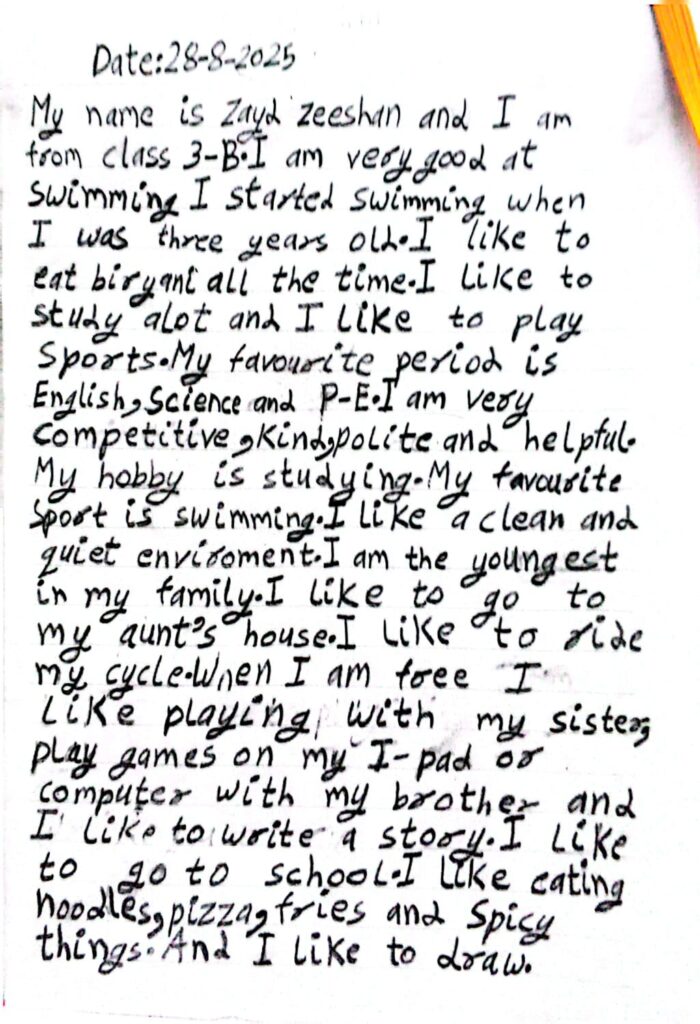 Date:28-8-2025
My name is Zayd zeeshan and I am
from class 3-B.I am very good at
swimming I started swimming when
I was three years old.I like to
eat biryani all the time.I like to
study alot and I like to play
Sports.My favourite period is
English,Science and P-E.I am very
competitive,Kind,polite and helpful.
My hobby is studying.My favourite
Sport is swimming.I like a clean and
quiet enviroment.I am the youngest
in my family.I like to go to
my aunt's house.I like to ride
my cycle.When I am free I
like playing with my sister,
play games on my I-pad or
computer with my brother and
I like to write a story.I like
to go to school.I like eating
noodles,pizza,fries and Spicy
things.And I like to draw.